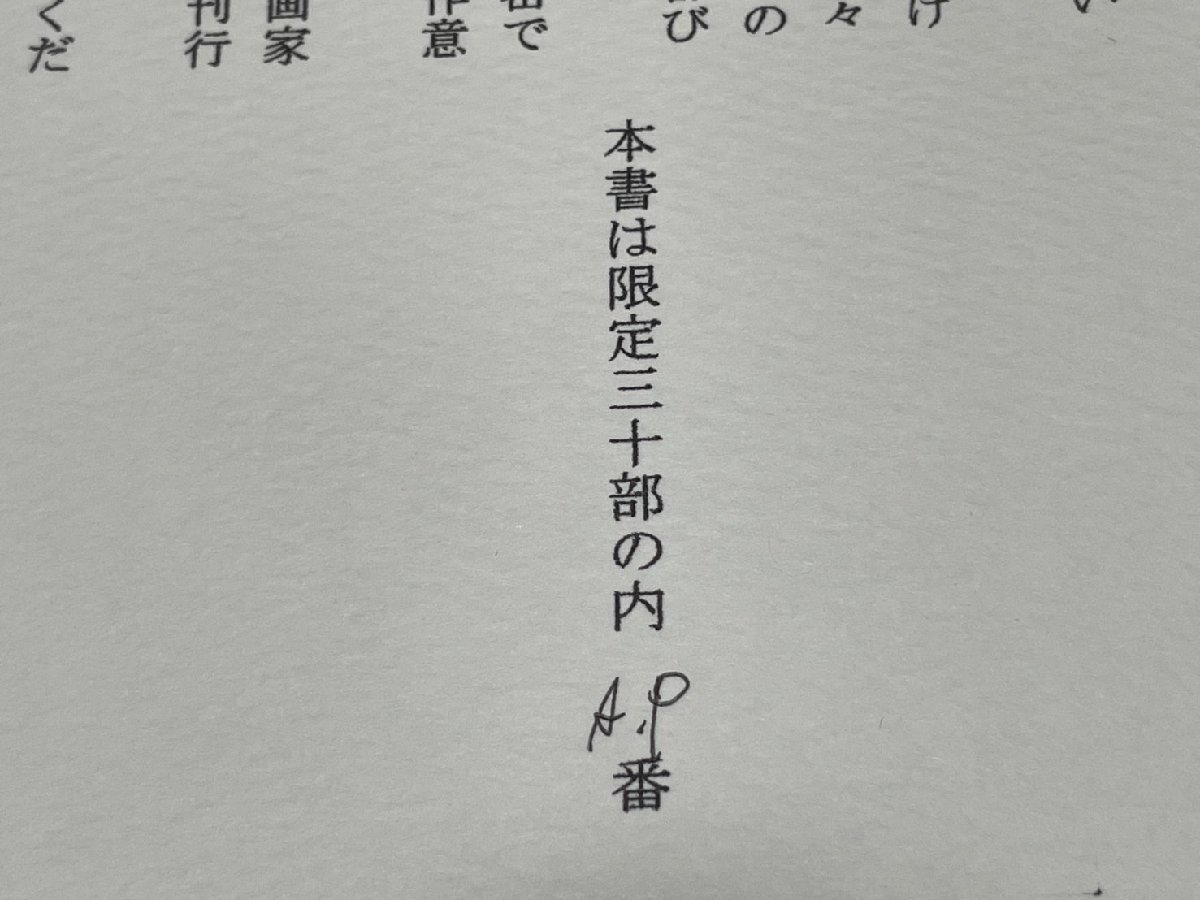 い
け
々
の
び
で
作意
画家
刊行
くだ
本書は限定三十部の内 A.P 番